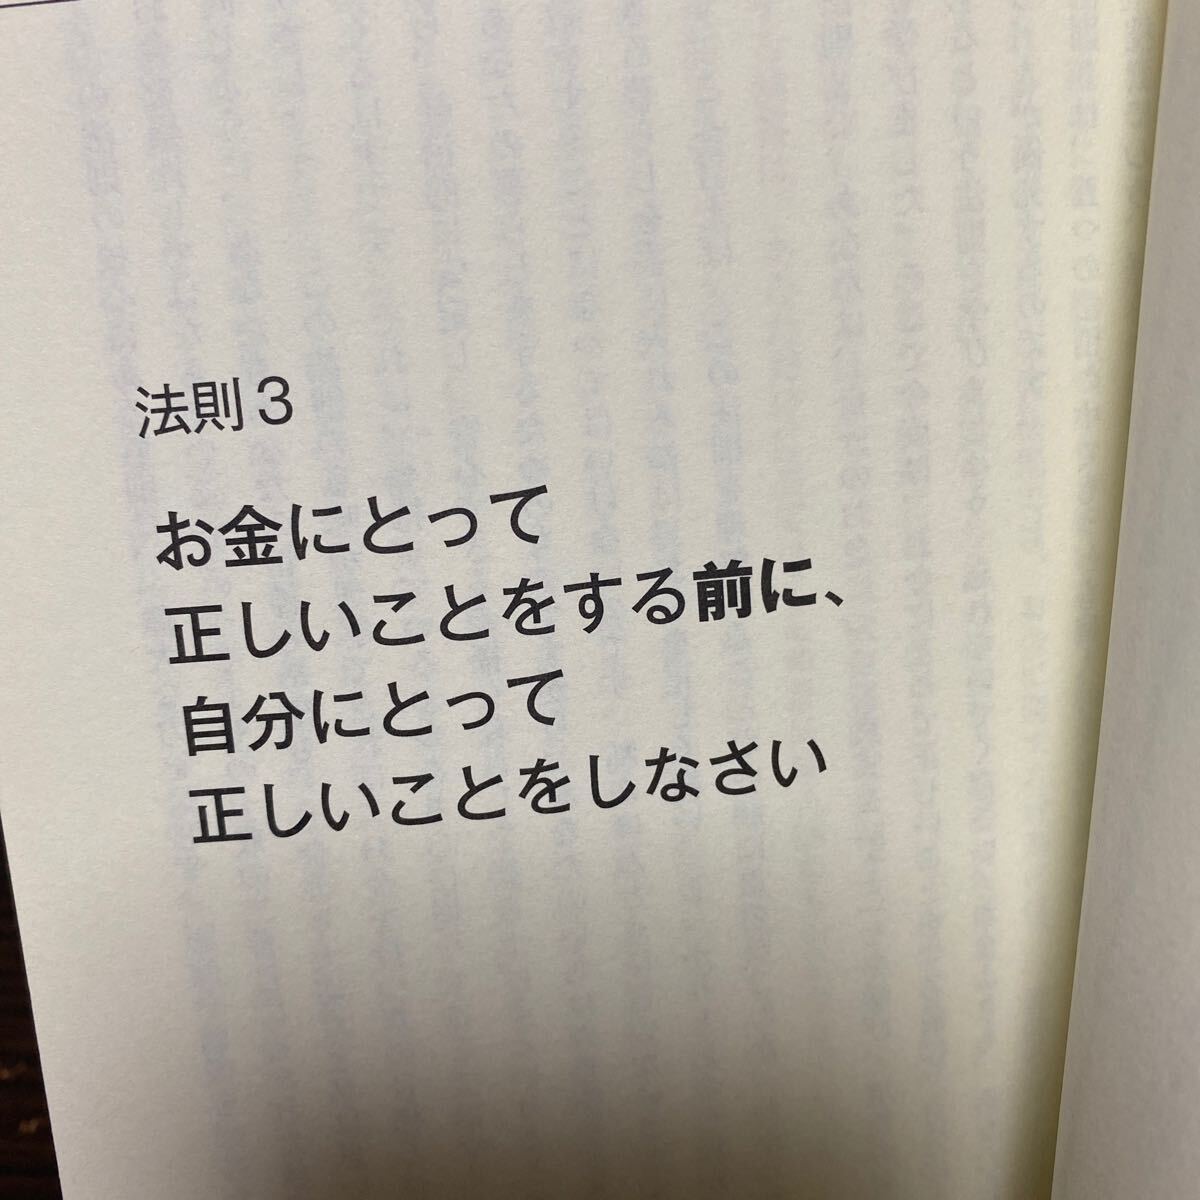 法則3
お金にとって
正しいことをする前に、
自分にとって
正しいことをしなさい